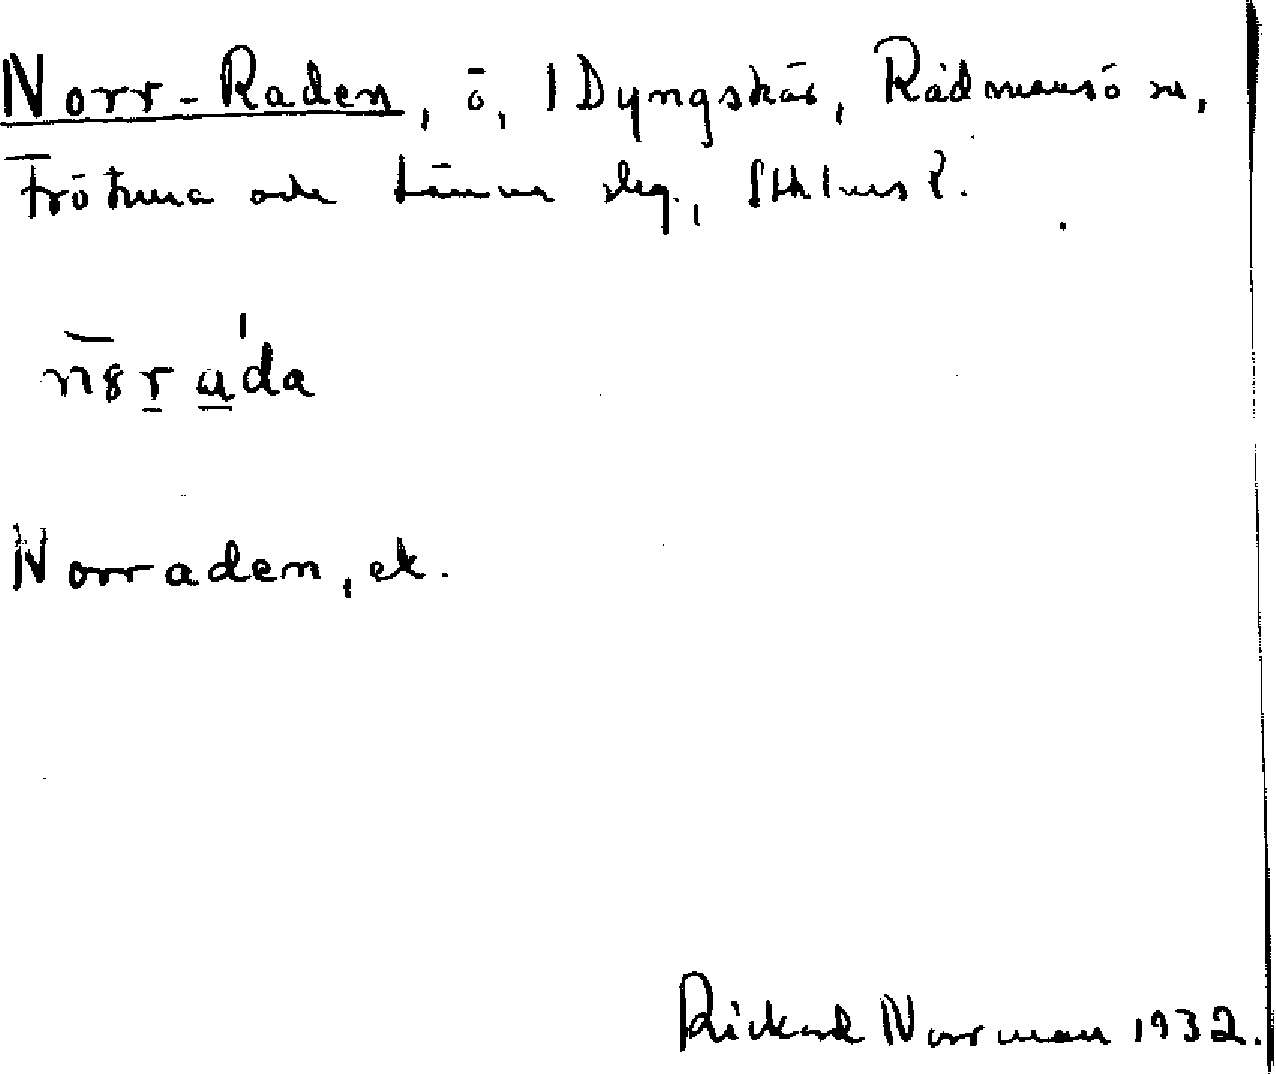 Norr-Raden, ö, 1 Dyngskär, Rådmansö sn,
Frötuna och Länna skg, Sthlms l.
nɞr ɑ́da
Norraden, ek.
Rickard Norrman 1932.